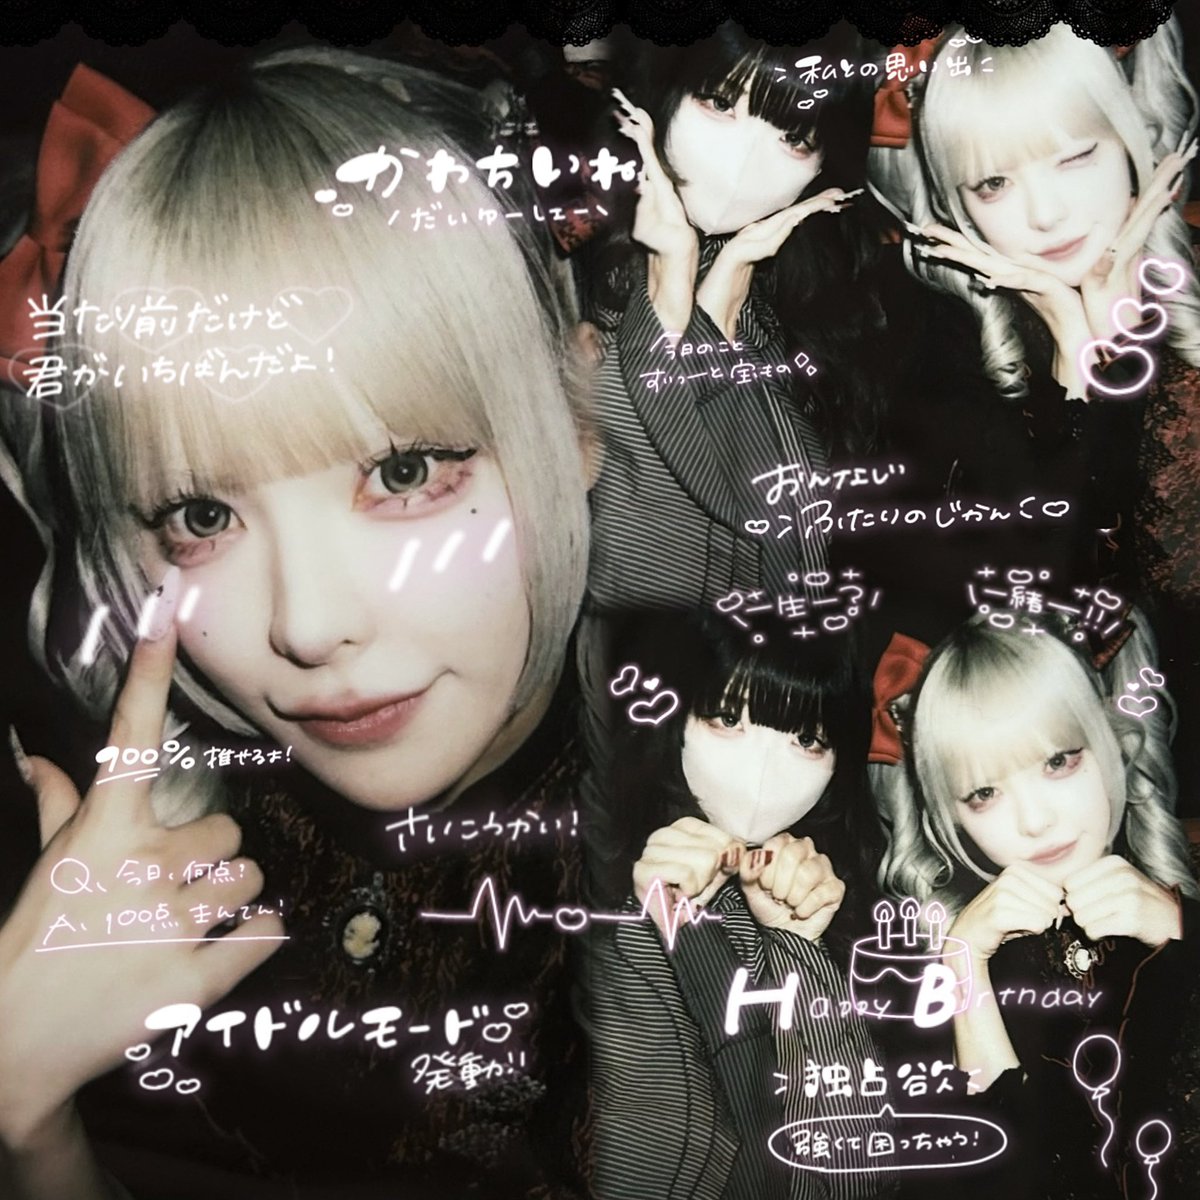 私との思い出
かわちいね
だいゆーしょー
当たり前だけど
君がいちばんだよ!
今日のこと
ずぅっーと宝もの
おんなじ
ふたりのじかん
一生ー?
一緒ー!!
900%推せるよ!
さいこうかい!
Q、今日、何点?
A、100点まんてん!
アイドルモード
発動!!
Happy Birthday
独占欲
強くて困っちゃう!